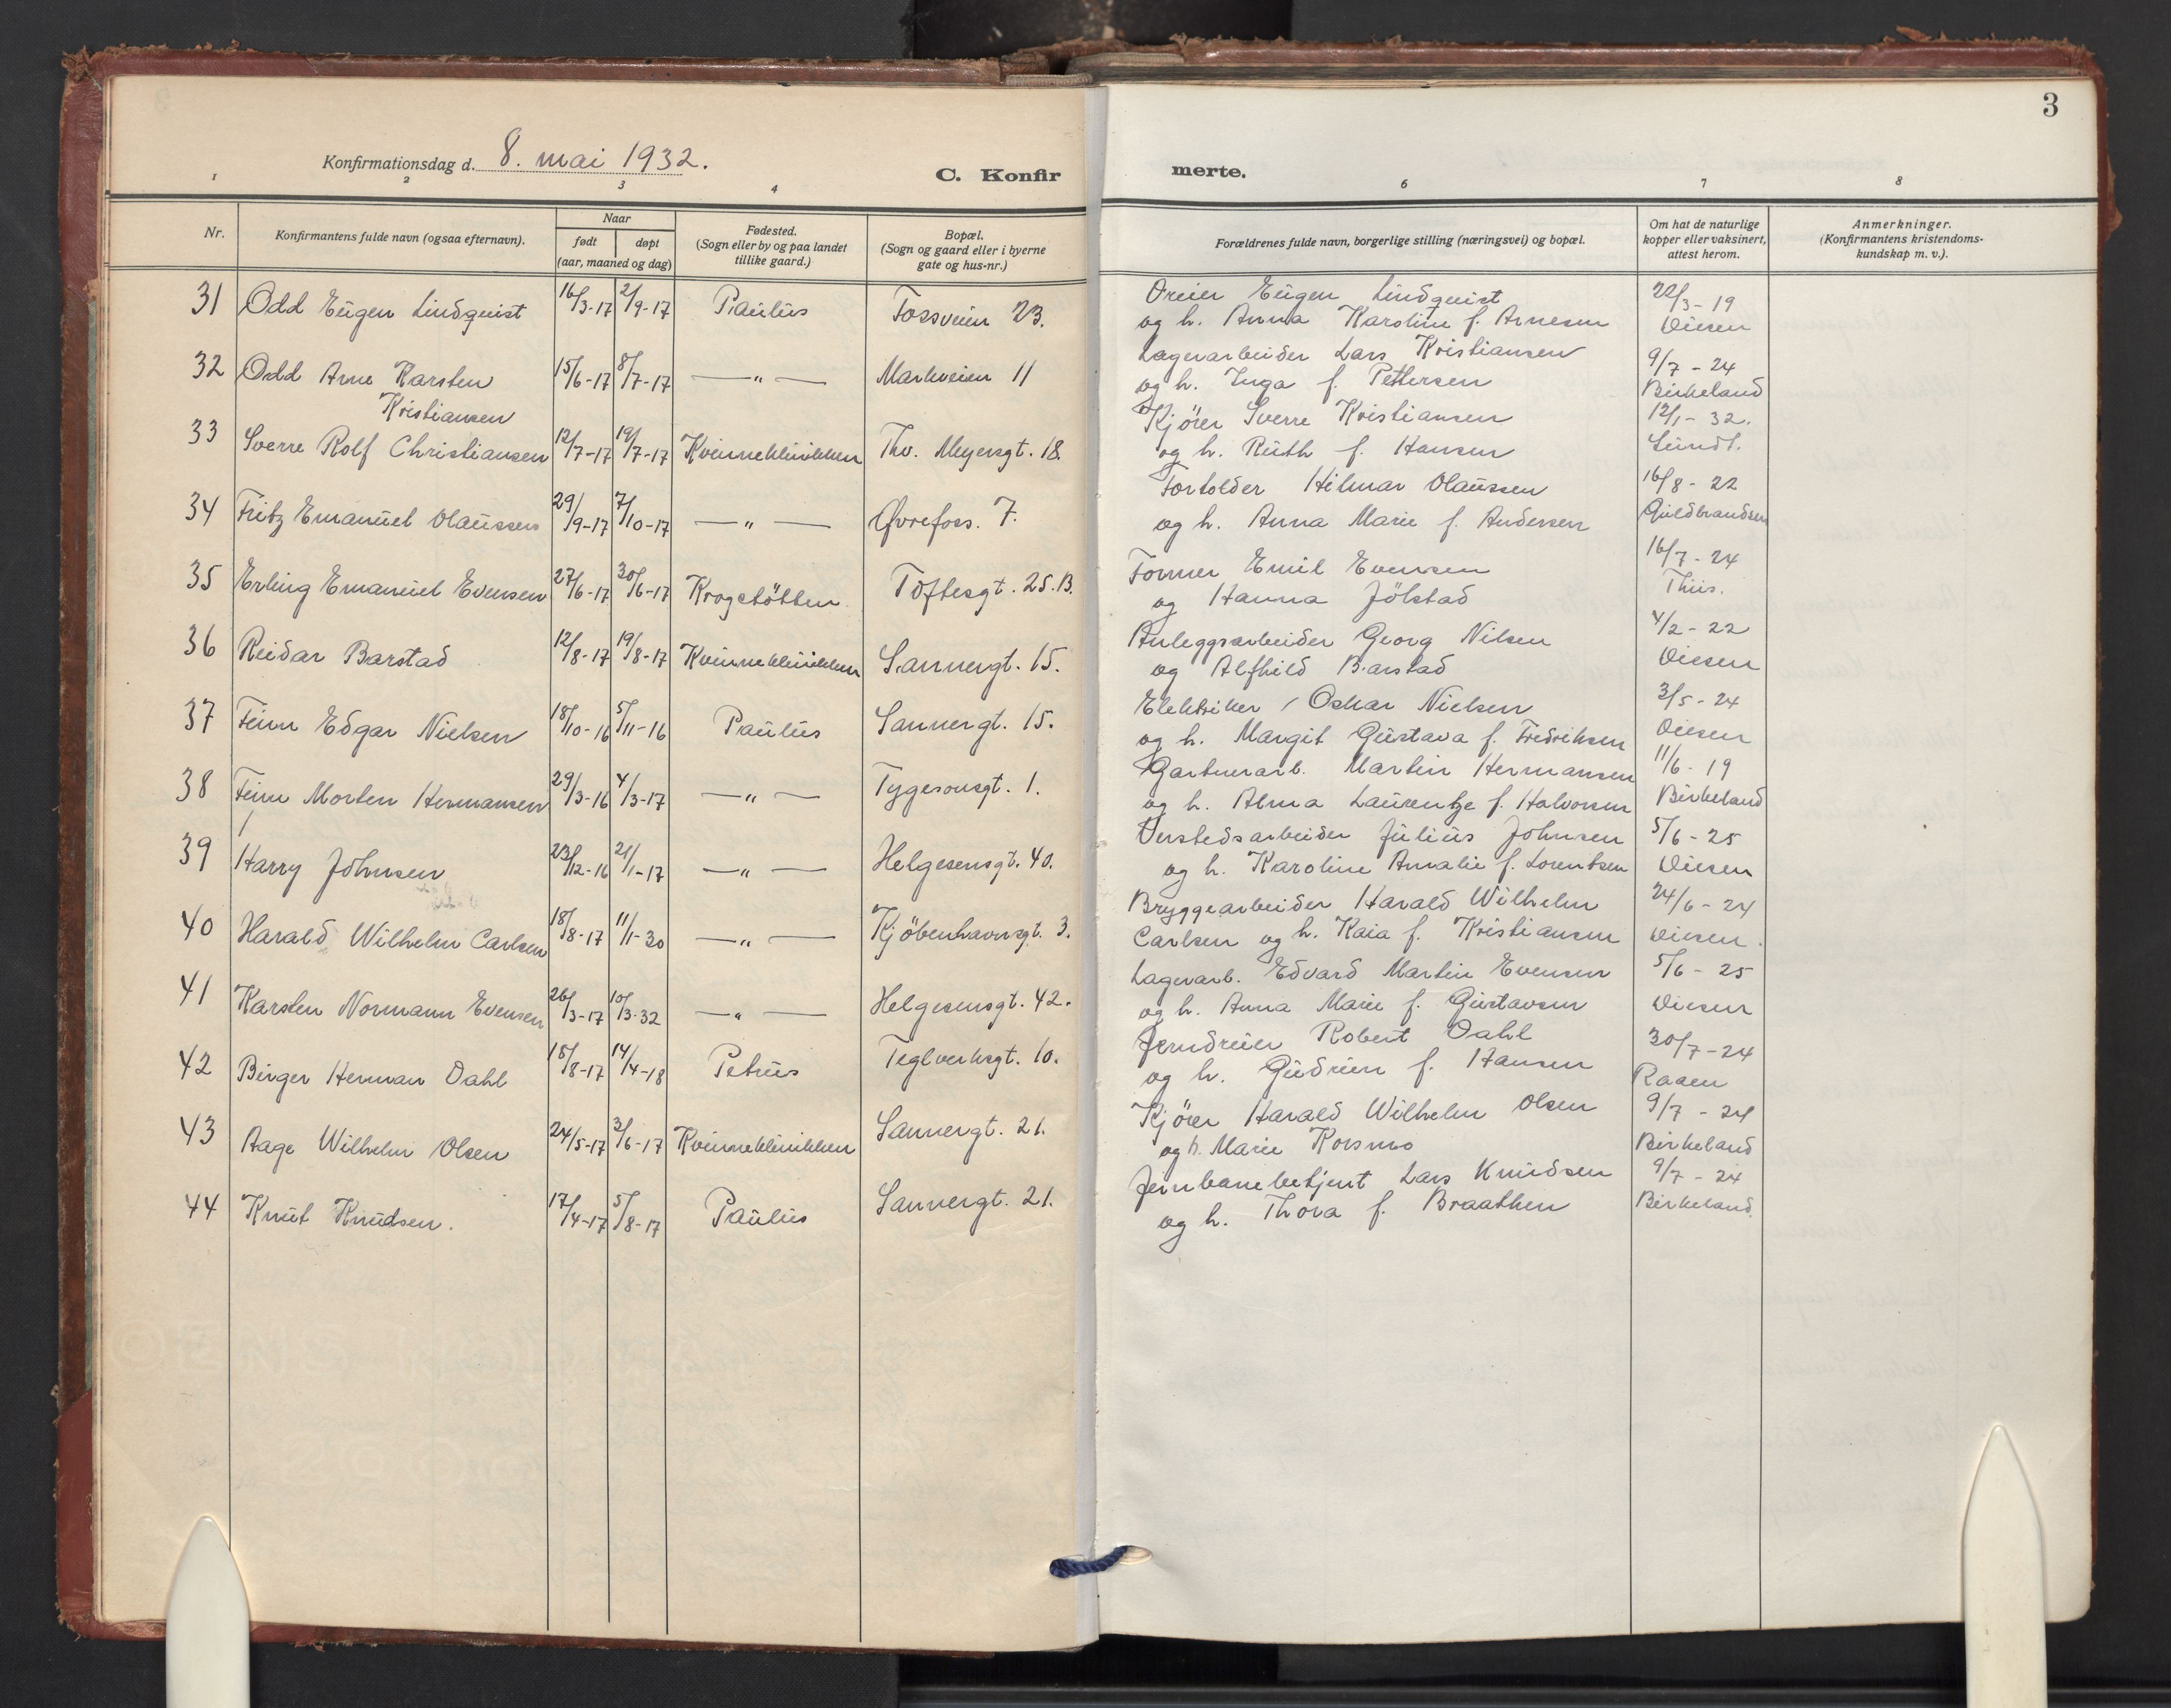 3
Konfirmationsdag d. 8. mai 1932.
C. Konfirmerte.
1 2 3 4 6 7 8
Nr.
Konfirmantens fulde navn (ogsaa efternavn).
Naar
født døpt
(aar, maaned og dag)
Fødested.
(Sogn eller by og paa landet
tillike gaard.)
Bopæl.
(Sogn og gaard eller i byerne
gate og hus-nr.)
Forældrenes fulde navn, borgerlige stilling (næringsvei) og bopæl.
Om hat de naturlige
kopper eller vaksinert,
attest herom.
Anmerkninger.
(Konfirmantens kristendoms-
kundskap m. v.).
31 Odd Eugen Lindquist 16/3-17 2/9-17 Paulus Fossveien 23. Dreier Eugen Lindquist 22/3-19
og h. Anna Karoline f. Arnesen Diesen
32 Odd Arne Karsten 15/6-17 8/7-17 —"— Markveien 11 Lagerarbeider Lars Kristiansen 9/7-24
Kristiansen og h. Inga f. Pettersen Birkeland
33 Sverre Rolf Christiansen 12/7-17 19/7-17 Kvinneklinikken Thv. Meyersgt. 18. Kjörer Sverre Kristiansen 12/1-32.
og h. Ruth f. Hansen Lundt.
34 Fritz Emanuel Olaussen 29/9-17 7/10-17 —"— Øvrefoss. 7. Fortolder Hilmar Olaussen 16/8-22
og h. Anna Marie f. Andersen Guldbrandsen
35 Erling Emanuel Evensen 27/6-17 30/6-17 Krogstötten Toftesgt. 25.B. Former Emil Evensen 16/7-24
og Hanna Jölstad Thiis.
36 Reidar Barstad 12/8-17 19/8-17 Kvinneklinikken Sannergt. 15. Anleggsarbeider Georg Nilsen 4/2-22
og Alfhild Barstad Diesen
37 Finn Edgar Nielsen 18/10-16 5/11-16 Paulus Sannergt. 15. Elektriker Oskar Nielsen 3/5-24
og h. Margit Gustava f. Fredriksen Diesen
38 Finn Morten Hermansen 29/3-16 4/3-17 —"— Tygesonsgt. 1. Gartnerarb. Martin Hermansen 11/6-19
og h. Alma Laurentze f. Halvorsen Birkeland
39 Harry Johnsen 23/12-16 21/1-17 —"— Helgesensgt. 40. Verstedsarbeider Julius Johnsen 5/6-25
og h. Karoline Amalie f. Lorentsen Diesen
40 Harald Wilhelm Carlsen 18/8-17 11/1-30 —"— Kjöbenhavnsgt. 3. Bryggearbeider Harald Wilhelm 24/6-24
Carlsen og h. Kaia f. Kristiansen Diesen.
41 Karsten Normann Evensen 26/3-17 10/3-32 —"— Helgesensgt. 42. Lagerarb. Edvard Martin Evensen 5/6-25
og h. Anna Marie f. Gustavsen Diesen
42 Birger Herman Dahl 18/8-17 14/4-18 Petrus Teglverksgt. 10. Jerndreier Robert Dahl 30/7-24
og h. Gudrun f. Hansen Raaen
43 Aage Wilhelm Olsen 24/5-17 3/6-17 Kvinneklinikken Sannergt. 21. Kjörer Harald Wilhelm Olsen 9/7-24
og h. Marie Korsmo Birkeland
44 Knut Knudsen. 17/4-17 5/8-17 Paulus Sannergt. 21. Jernbanebetjent Lars Knudsen 9/7-24
og h. Thora f. Braathen Birkeland.